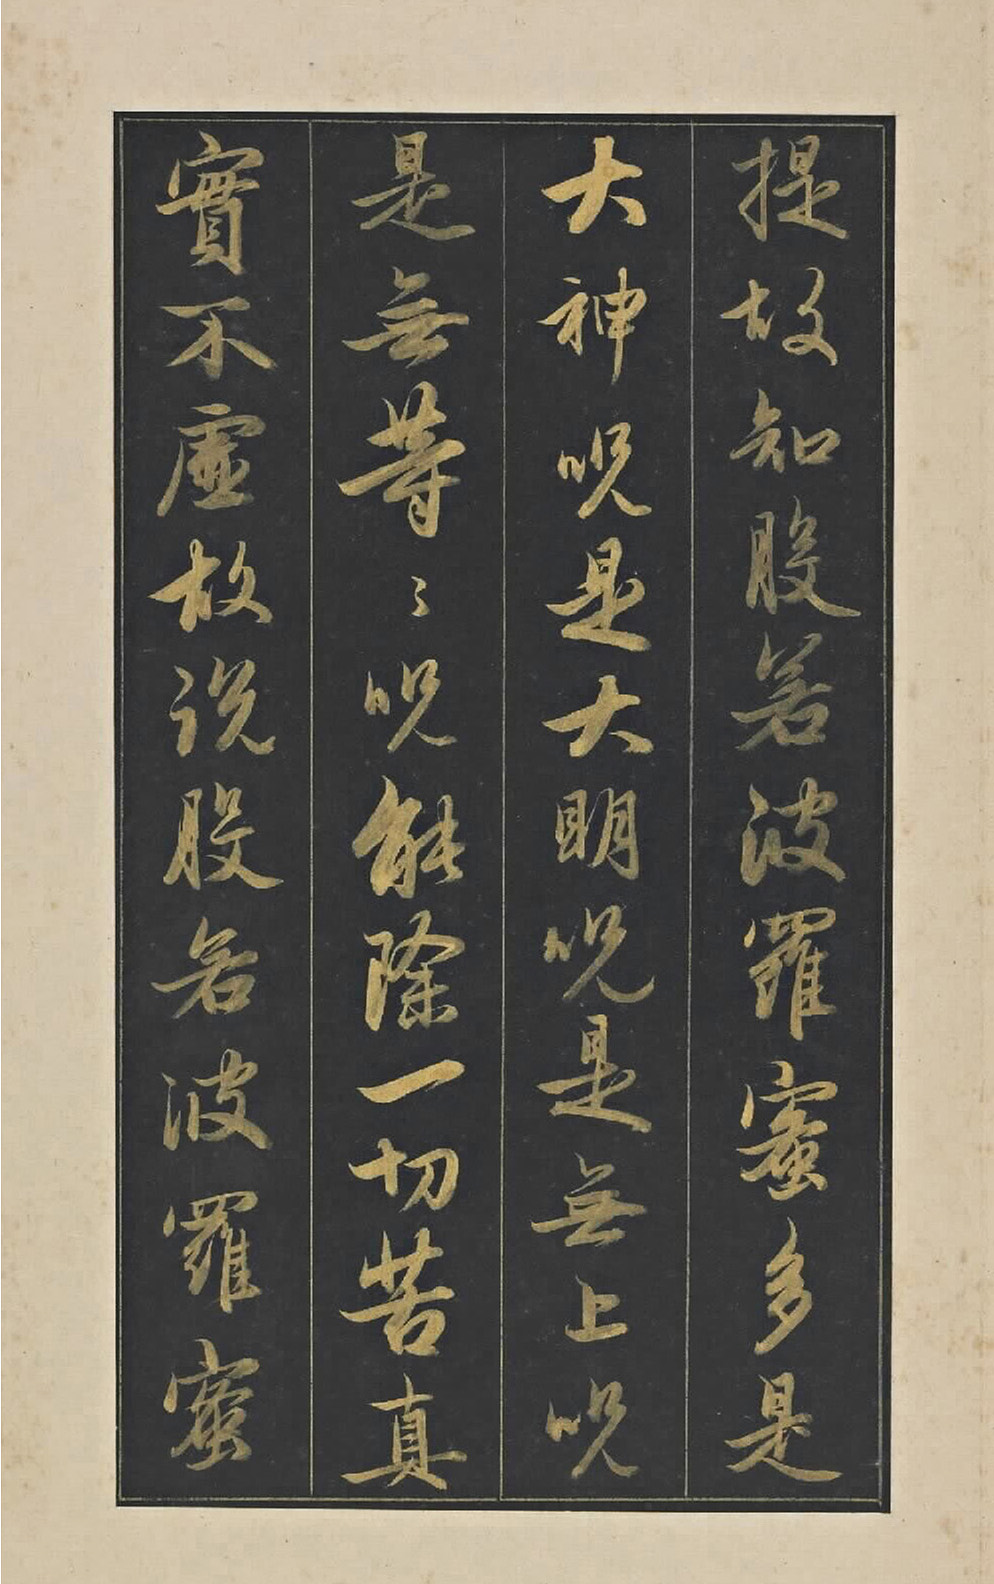 提故知般若波羅蜜多是
大神呪是大明呪是無上呪
是無等〻呪能除一切苦真
實不虛故說般若波羅蜜